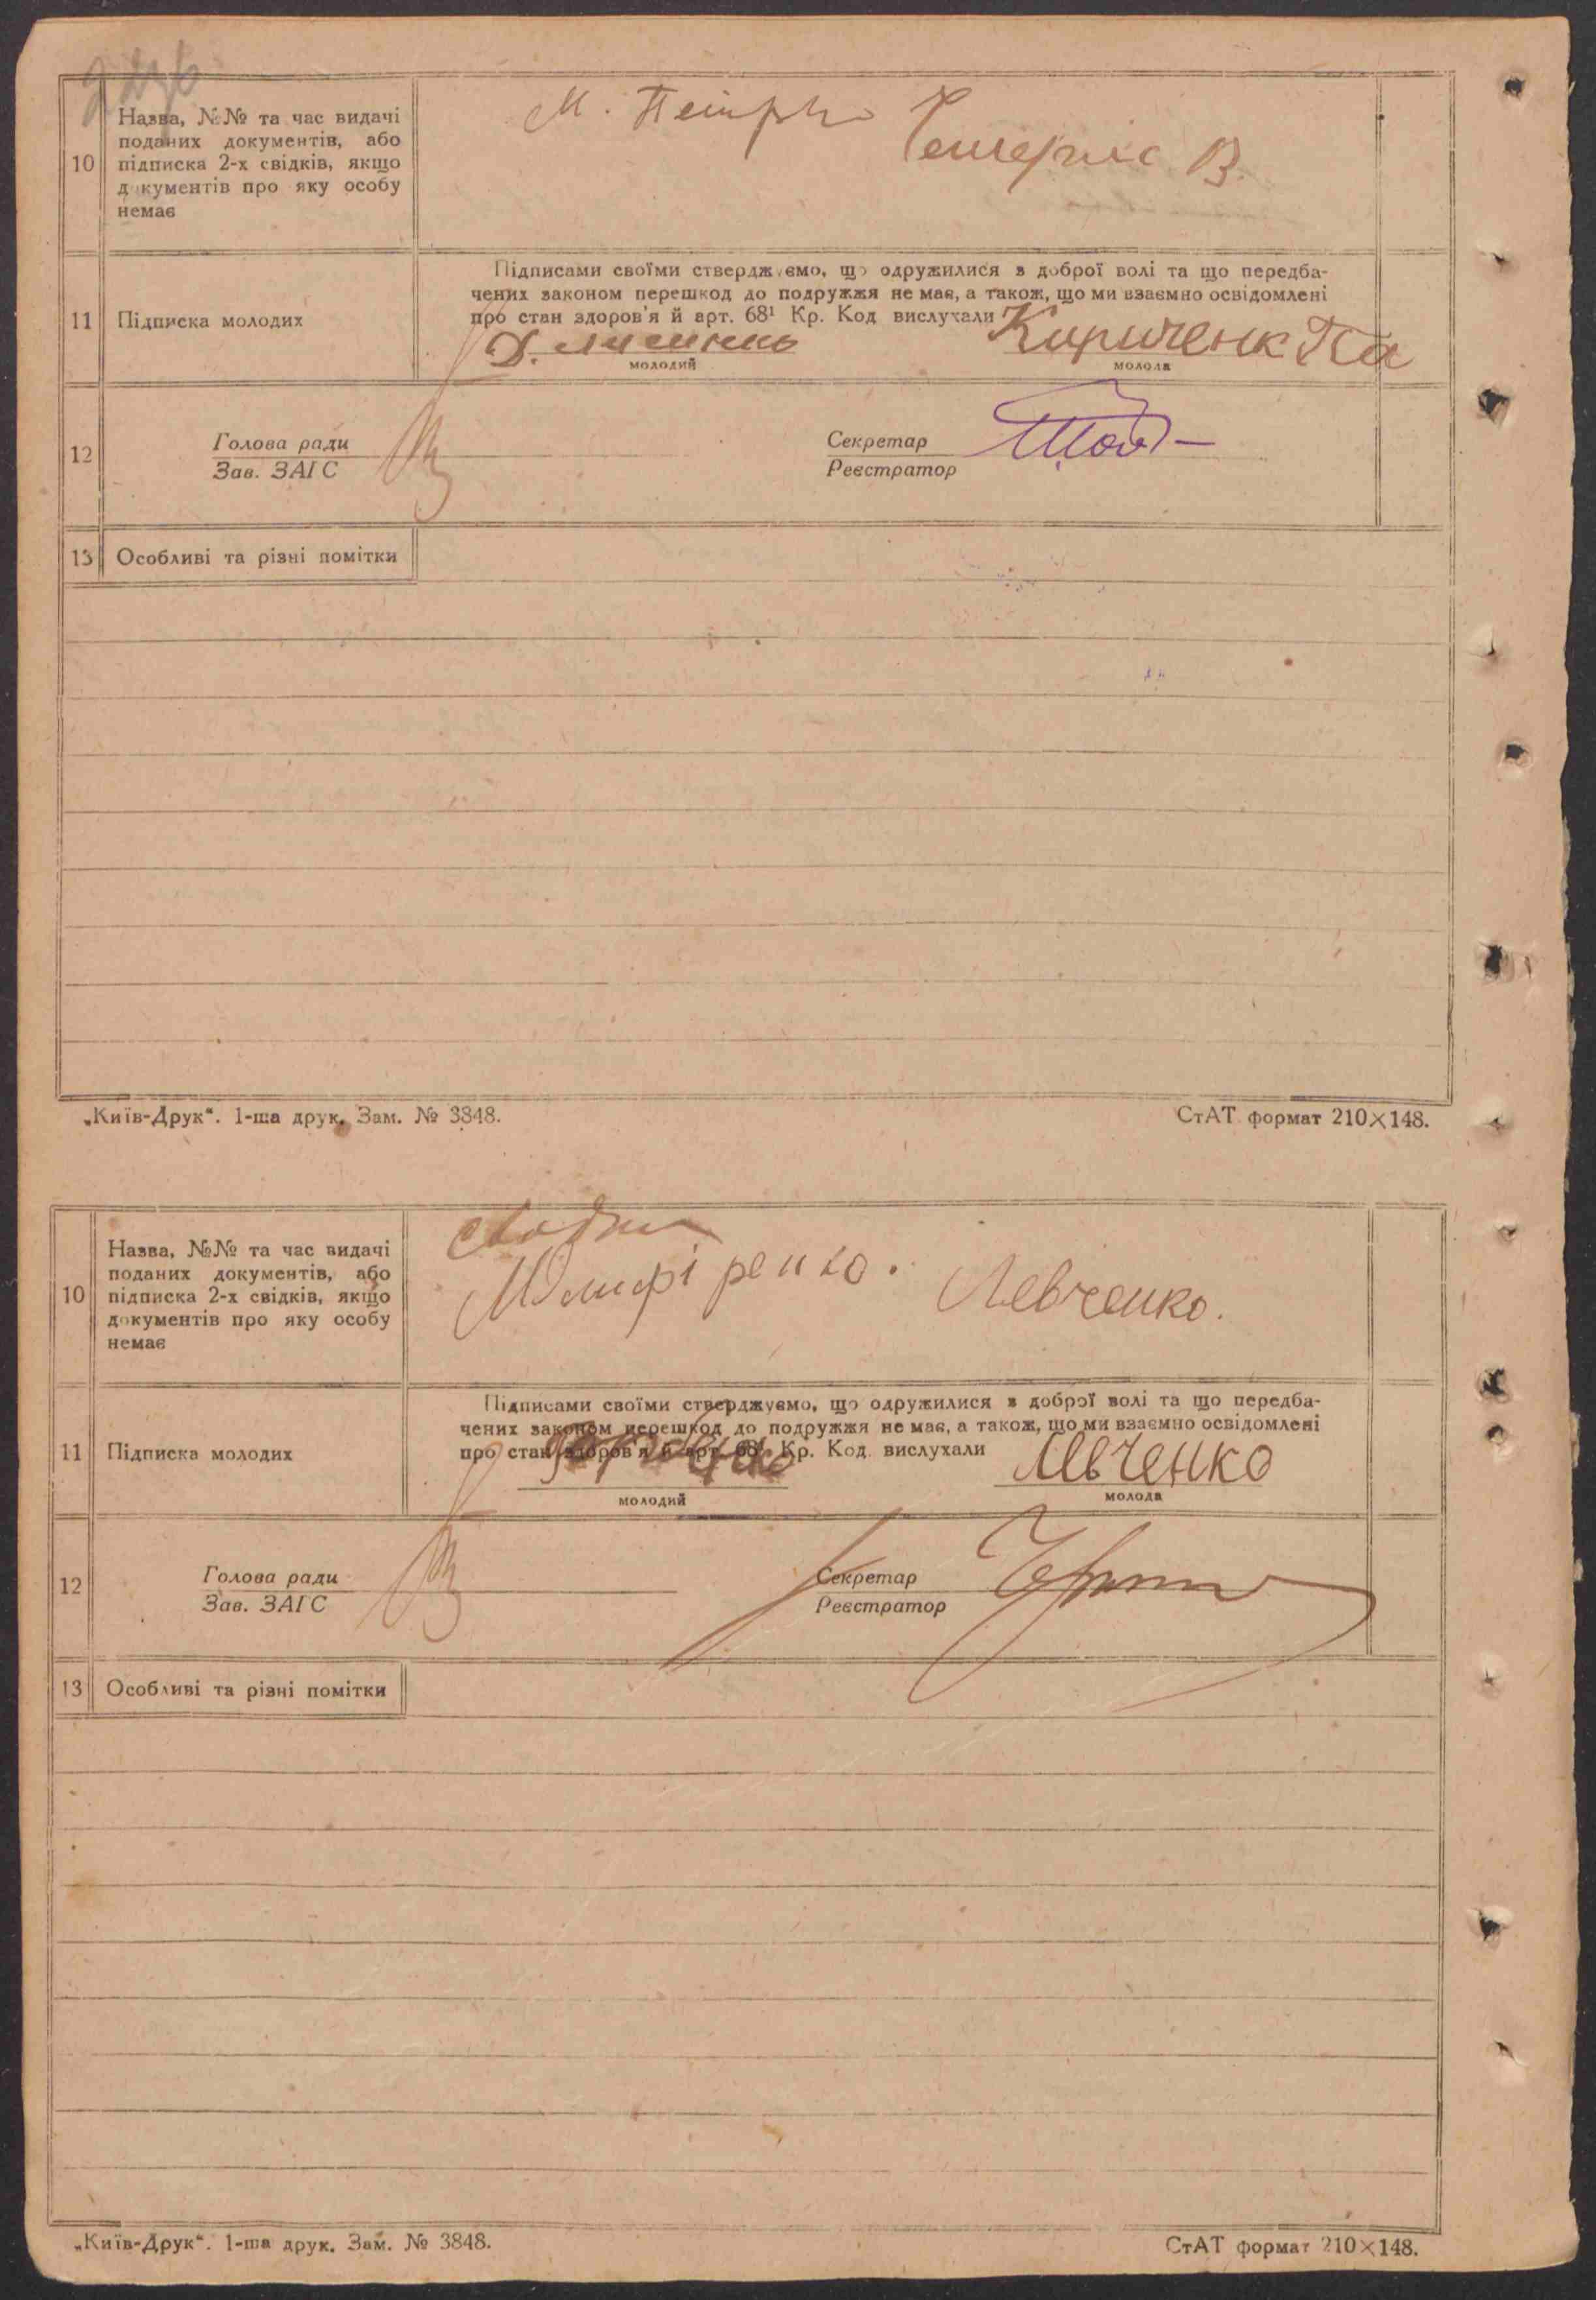 10
Назва, №№ та час видачі
поданих документів, або
підписка 2-х свідків, якщо
документів про яку особу
немає
М.
В.
11
Підписка молодих
Підписами своїми стверджуємо, що одружилися з доброї волі та що передба-
чених законом перешкод до подружжя не має, а також, що ми взаємно освідомлені
про стан здоров'я й арт. 68¹ Кр. Код вислухали
Д.
Кириченк
молодий
молода
12
Голова ради
Зав. ЗАГС
Секретар
Реєстратор
13
Особливі та різні помітки
„Київ-Друк“. 1-ша друк. Зам. № 3848.
СтАТ формат 210×148.
10
Назва, №№ та час видачі
поданих документів, або
підписка 2-х свідків, якщо
документів про яку особу
немає
Левченко.
11
Підписка молодих
Підписами своїми стверджуємо, що одружилися з доброї волі та що передба-
чених законом перешкод до подружжя не має, а також, що ми взаємно освідомлені
про стан здоров'я й арт. 68¹ Кр. Код вислухали
Левченко
молодий
молода
12
Голова ради
Зав. ЗАГС
Секретар
Реєстратор
13
Особливі та різні помітки
„Київ-Друк“. 1-ша друк. Зам. № 3848.
СтАТ формат 210×148.